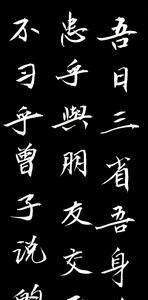 吾日三省吾身
忠乎與朋友交
不习乎曾子说的